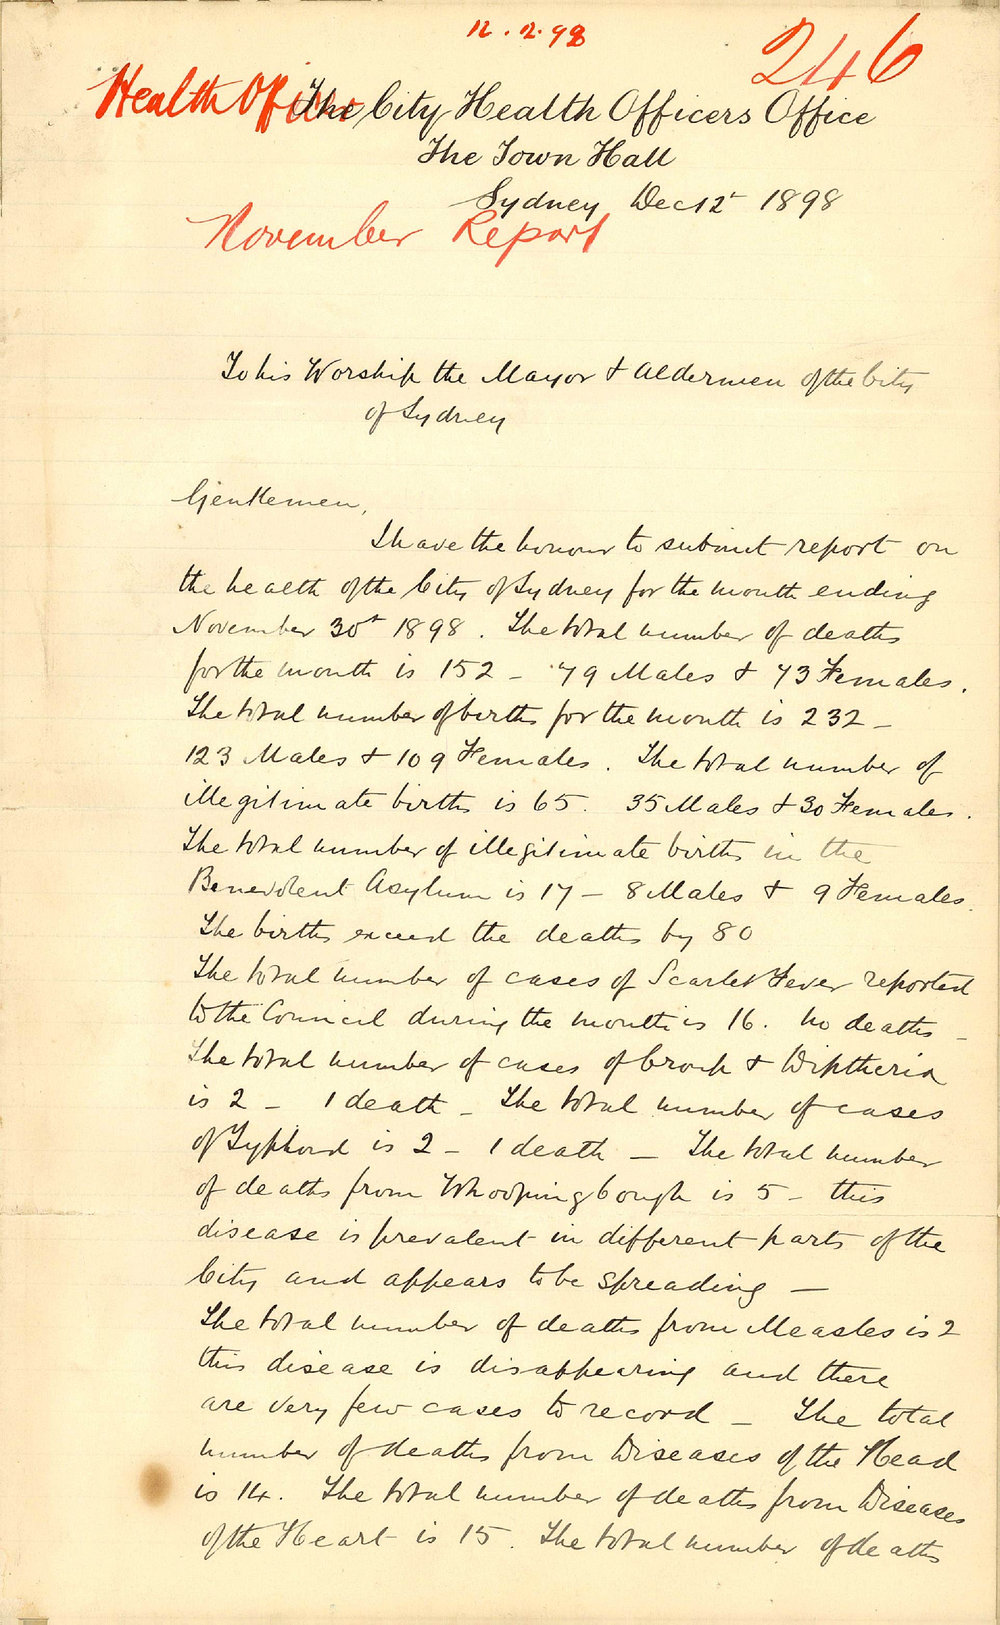 12.2.98
246
Health Officer
The City Health Officers Office
The Town Hall
Sydney Dec 12t 1898
November Report
To his Worship the Mayor & Aldermen of the City
of Sydney
Gentlemen,
I have the honour to submit report on
the health of the City of Sydney for the month ending
November 30t 1898. The total number of deaths
for the month is 152 – 79 Males & 73 Females.
The total number of births for the month is 232 –
123 Males & 109 Females. The total number of
illegitimate births is 65. 35 Males & 30 Females.
The total number of illegitimate births in the
Benevolent Asylum is 17 – 8 Males & 9 Females.
The births exceed the deaths by 80
The total number of cases of Scarlet Fever reported
to the Council during the month is 16. no deaths –
The total number of cases of Croup & Diptheria
is 2 – 1 death – The total number of cases
of Typhoid is 2 – 1 death – The total number
of deaths from Whooping Cough is 5 – this
disease is prevalent in different parts of the
City and appears to be spreading –
The total number of deaths from Measles is 2
this disease is disappearing and there
are very few cases to record – The total
number of deaths from Diseases of the Head
is 14. The total number of deaths from Diseases
of the Heart is 15. The total number of deaths